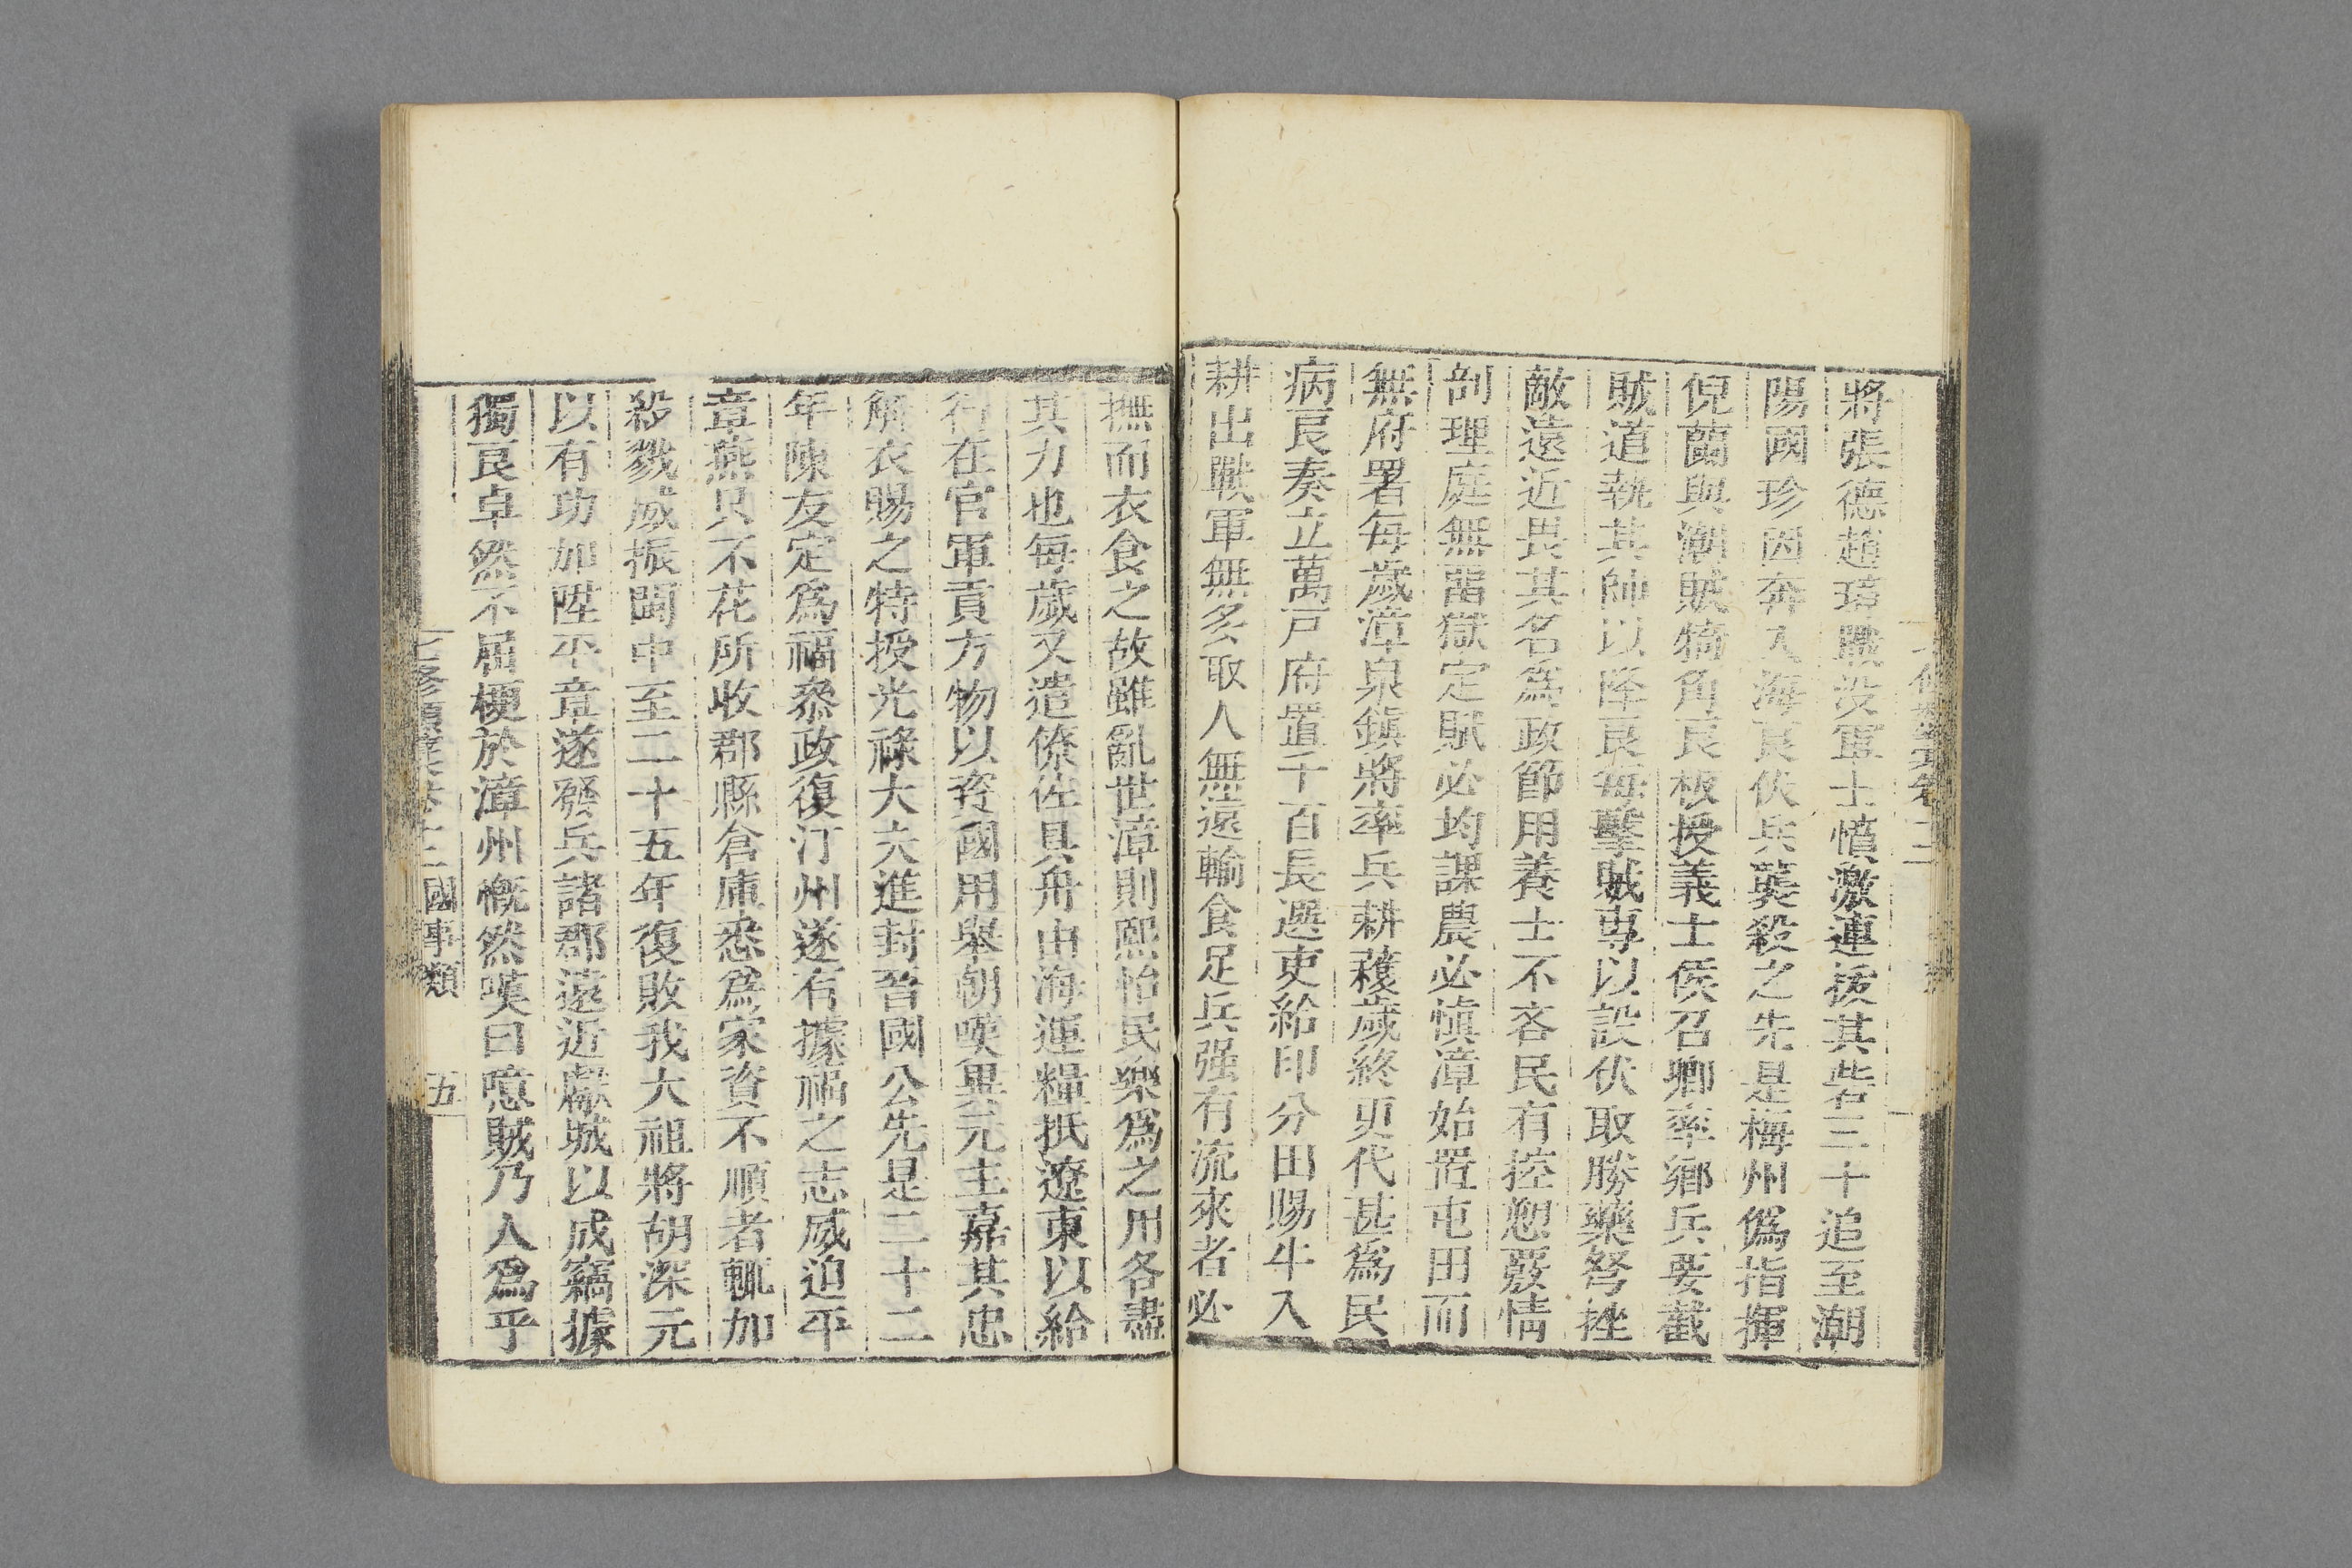 將張德趙璹戰没軍士憤激連拔其砦三十追至潮
陽國珍因奔入海良伏兵襲殺之先是梅州僞指揮
倪蘭與潮賊犄角良板授義士侯召卿率鄉兵要截
賊道執其帥以降良每擊賊專以設伏取勝藥弩挫
敵遠近畏其名爲政節用養士不吝民有控愬覈情
剖理庭無畱獄定賦必均課農必慎漳始置屯田而
無府署每歲漳泉鎮將率兵耕穫歲終更代甚爲民
病良奏立萬戸府置千百長選吏給印分田賜牛入
耕出戰軍無多取人無遠輸食足兵强有流來者必
撫而衣食之故雖亂世漳則熙怡民樂爲之用各盡
其力也每歲又遣僚佐具舟由海運糧抵遼東以給
行在官軍貢方物以資國用舉朝嘆異元主嘉其忠
解衣賜之特授光祿大夫進封晉國公先是二十二
年陳友定爲福叅政復汀州遂有據福之志威迫平
章燕只不花所收郡縣倉庫悉爲家資不順者輒加
殺戮威振閩中至二十五年復敗我大祖將胡深元
以有功加陞平章遂發兵諸郡遠近獻城以成竊據
獨良卓然不屈梗於漳州慨然嘆曰噫賊乃人爲乎
七修類藁卷十二 國事類 五